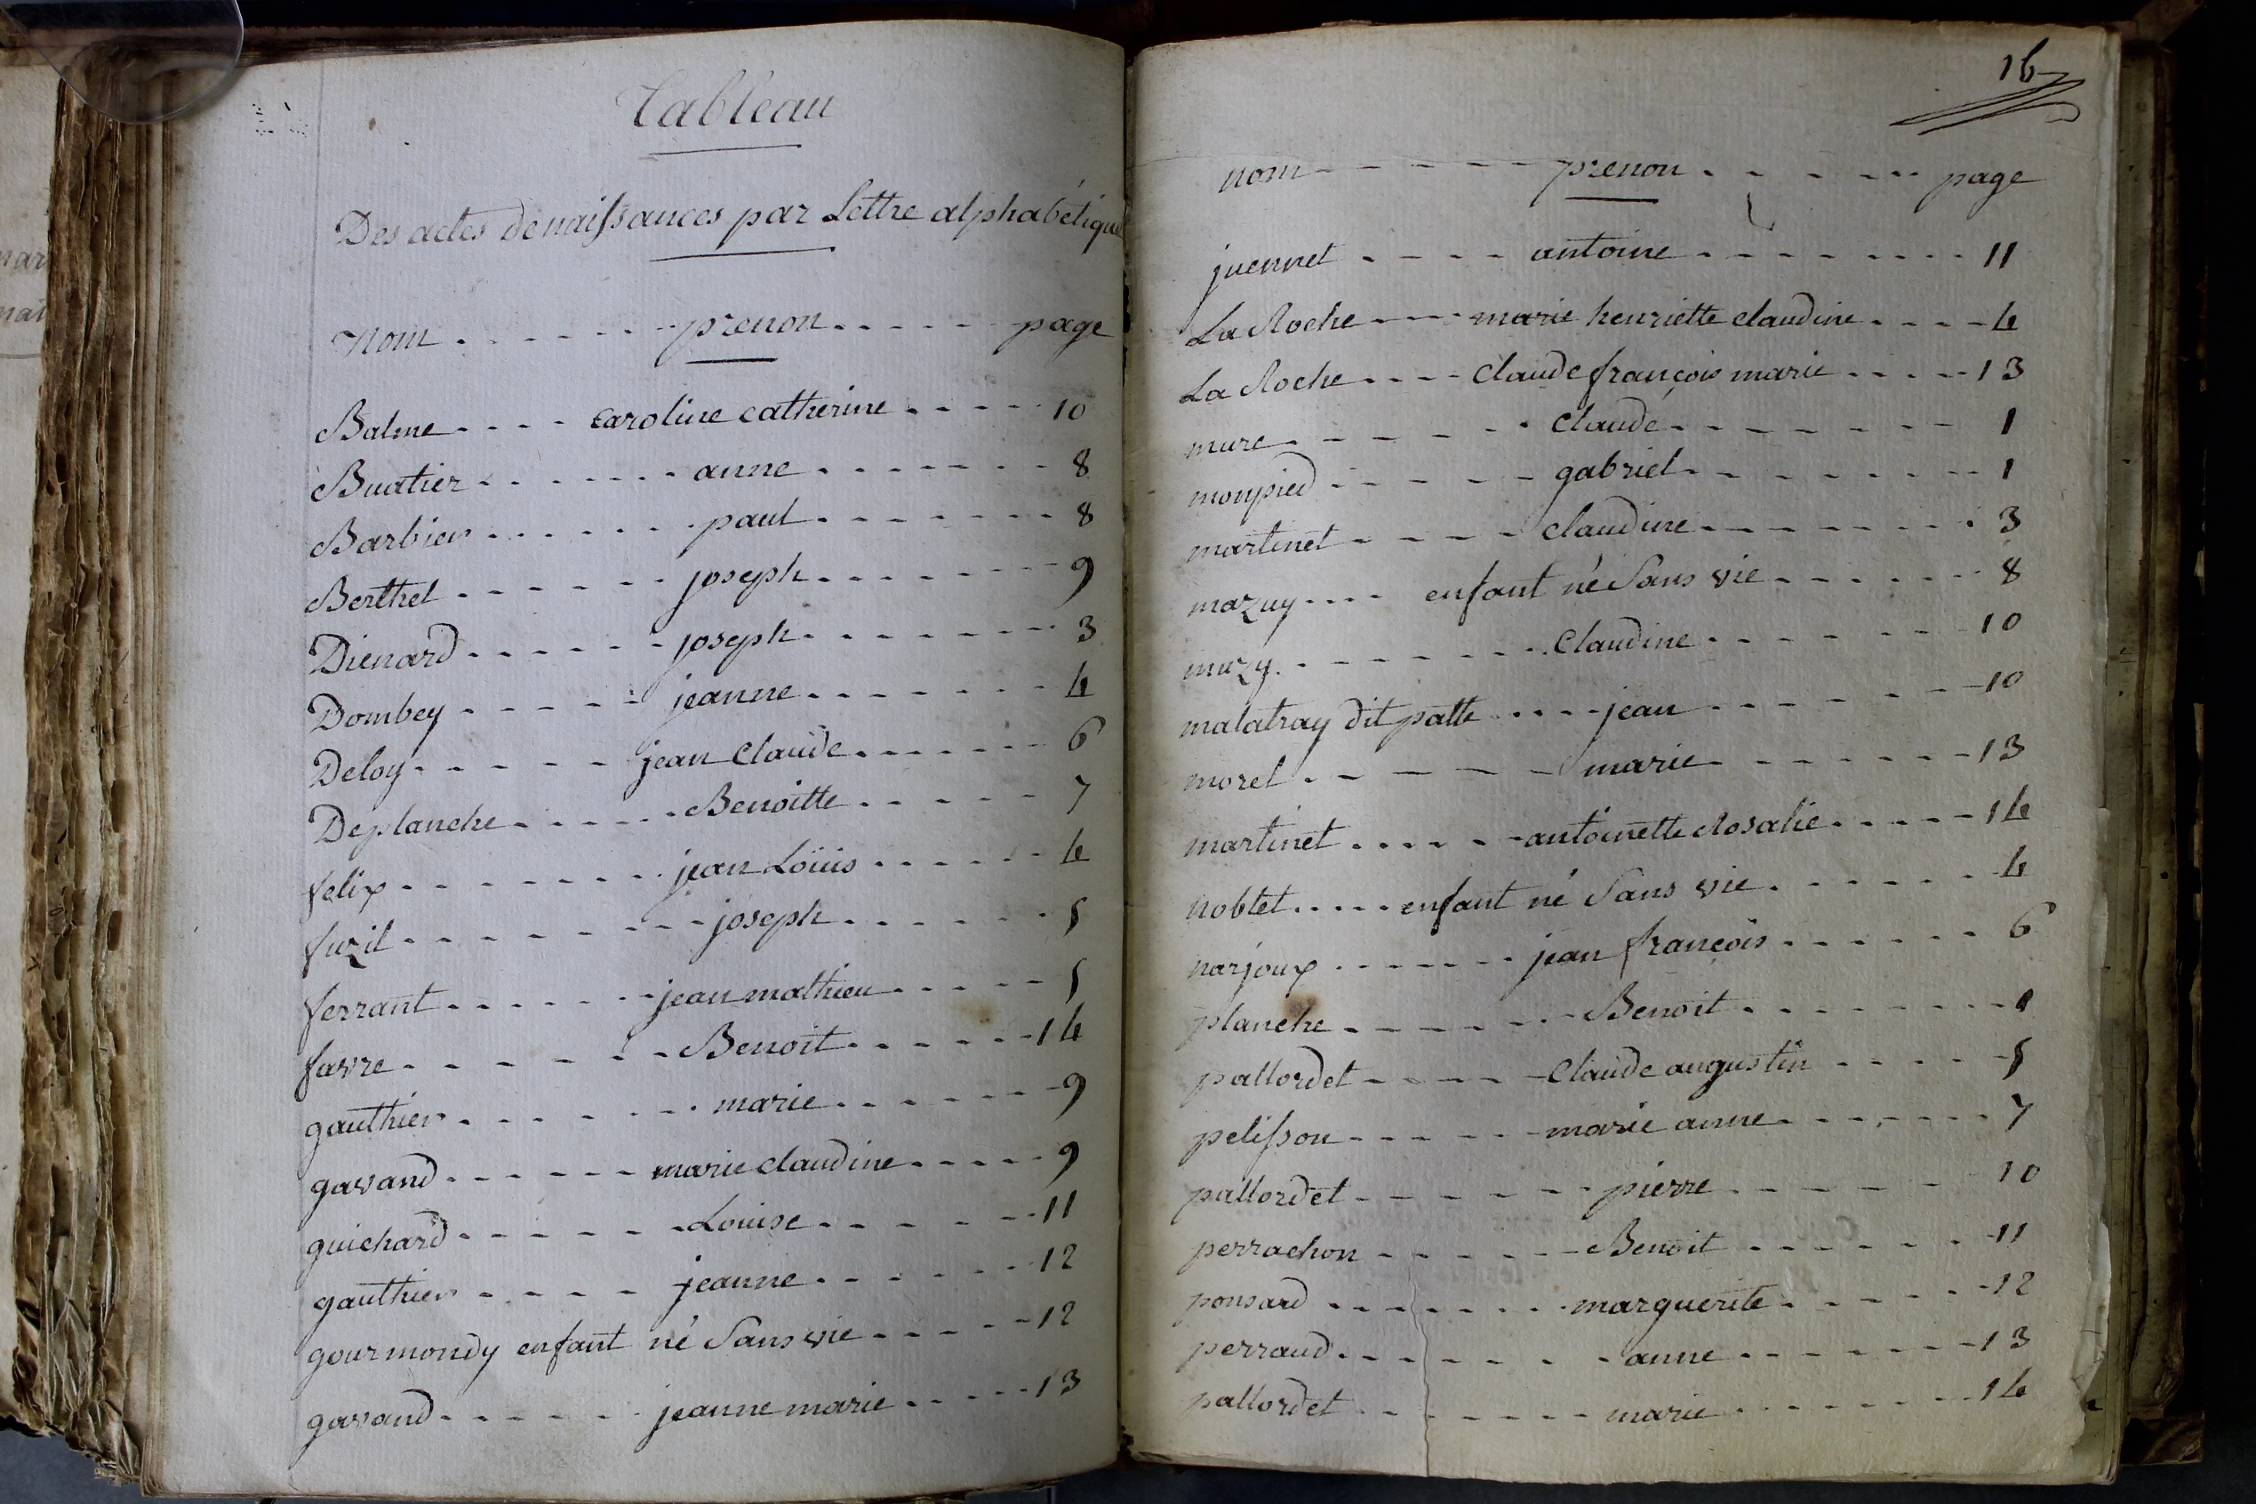 Tableau
Des actes de naissances par Lettre alphabétique
Nom . . . . . . prenon . . . . . . page
Balme . . . . caroline catherine . . . . . 10
Buatier . . . . . . . anne . . . . . . . 8
Barbier . . . . . . . paul . . . . . . . 8
Berthet . . . . . . joseph . . . . . . . 9
Dienard . . . . . . joseph . . . . . . . 3
Dombey . . . . . jeanne . . . . . . . 4
Deloy . . . . . jean Claude . . . . . . 6
Deplanche . . . . . Benoitte . . . . . 7
felix . . . . . . . jean Loüis . . . . . . 4
fuzil . . . . . . . joseph . . . . . . 5
ferrant . . . . . . jean mathieu . . . . . 5
favre . . . . . . Benoit . . . . . . 14
gauthier . . . . . . marie . . . . . . 9
gavand . . . . . . marie claudine . . . . . 9
guichard . . . . . . Louise . . . . . . 11
gauthier . . . . . jeanne . . . . . . 12
gourmondy enfant né Sans vie . . . . . 12
gavand . . . . . . jeanne marie . . . . . 13
16
nom - - - - - prenon . . . . . . page
juennet . . . . antoine . . . . . . . . 11
La Roche - - - marie henriette claudine . . . . 4
La Roche . . . . Claude françois marie . . . . 13
mure . . . . . . Claude . . . . . . . 1
monpied . . . . . gabriel . . . . . . . 1
martinet . . . . claudine . . . . . . . 3
mazuy . . . . enfant né Sans vie . . . . . . 8
muzy . . . . . . . Claudine . . . . . . 10
malatray dit patte . . . . jean . . . . . . 10
morel . . . . . . marie . . . . . . 13
martinet . . . . . antoinette Rosalie . . . . . 14
noblet . . . . . enfant né Sans vie . . . . . . 4
narjoux . . . . . . . jean françois . . . . . . 6
planche . . . . . . Benoit . . . . . . . 1
pallordet . . . . . Claude augustin . . . . . 5
pelisson . . . . . marie anne . . . . . . 7
pallordet . . . . . . pierre . . . . . 10
perrachon . . . . . . Benoit . . . . . . 11
ponsard . . . . . . . marguerite . . . . . 12
perraud . . . . . . anne . . . . . . 13
pallordet . . . . . . marie . . . . . . 14